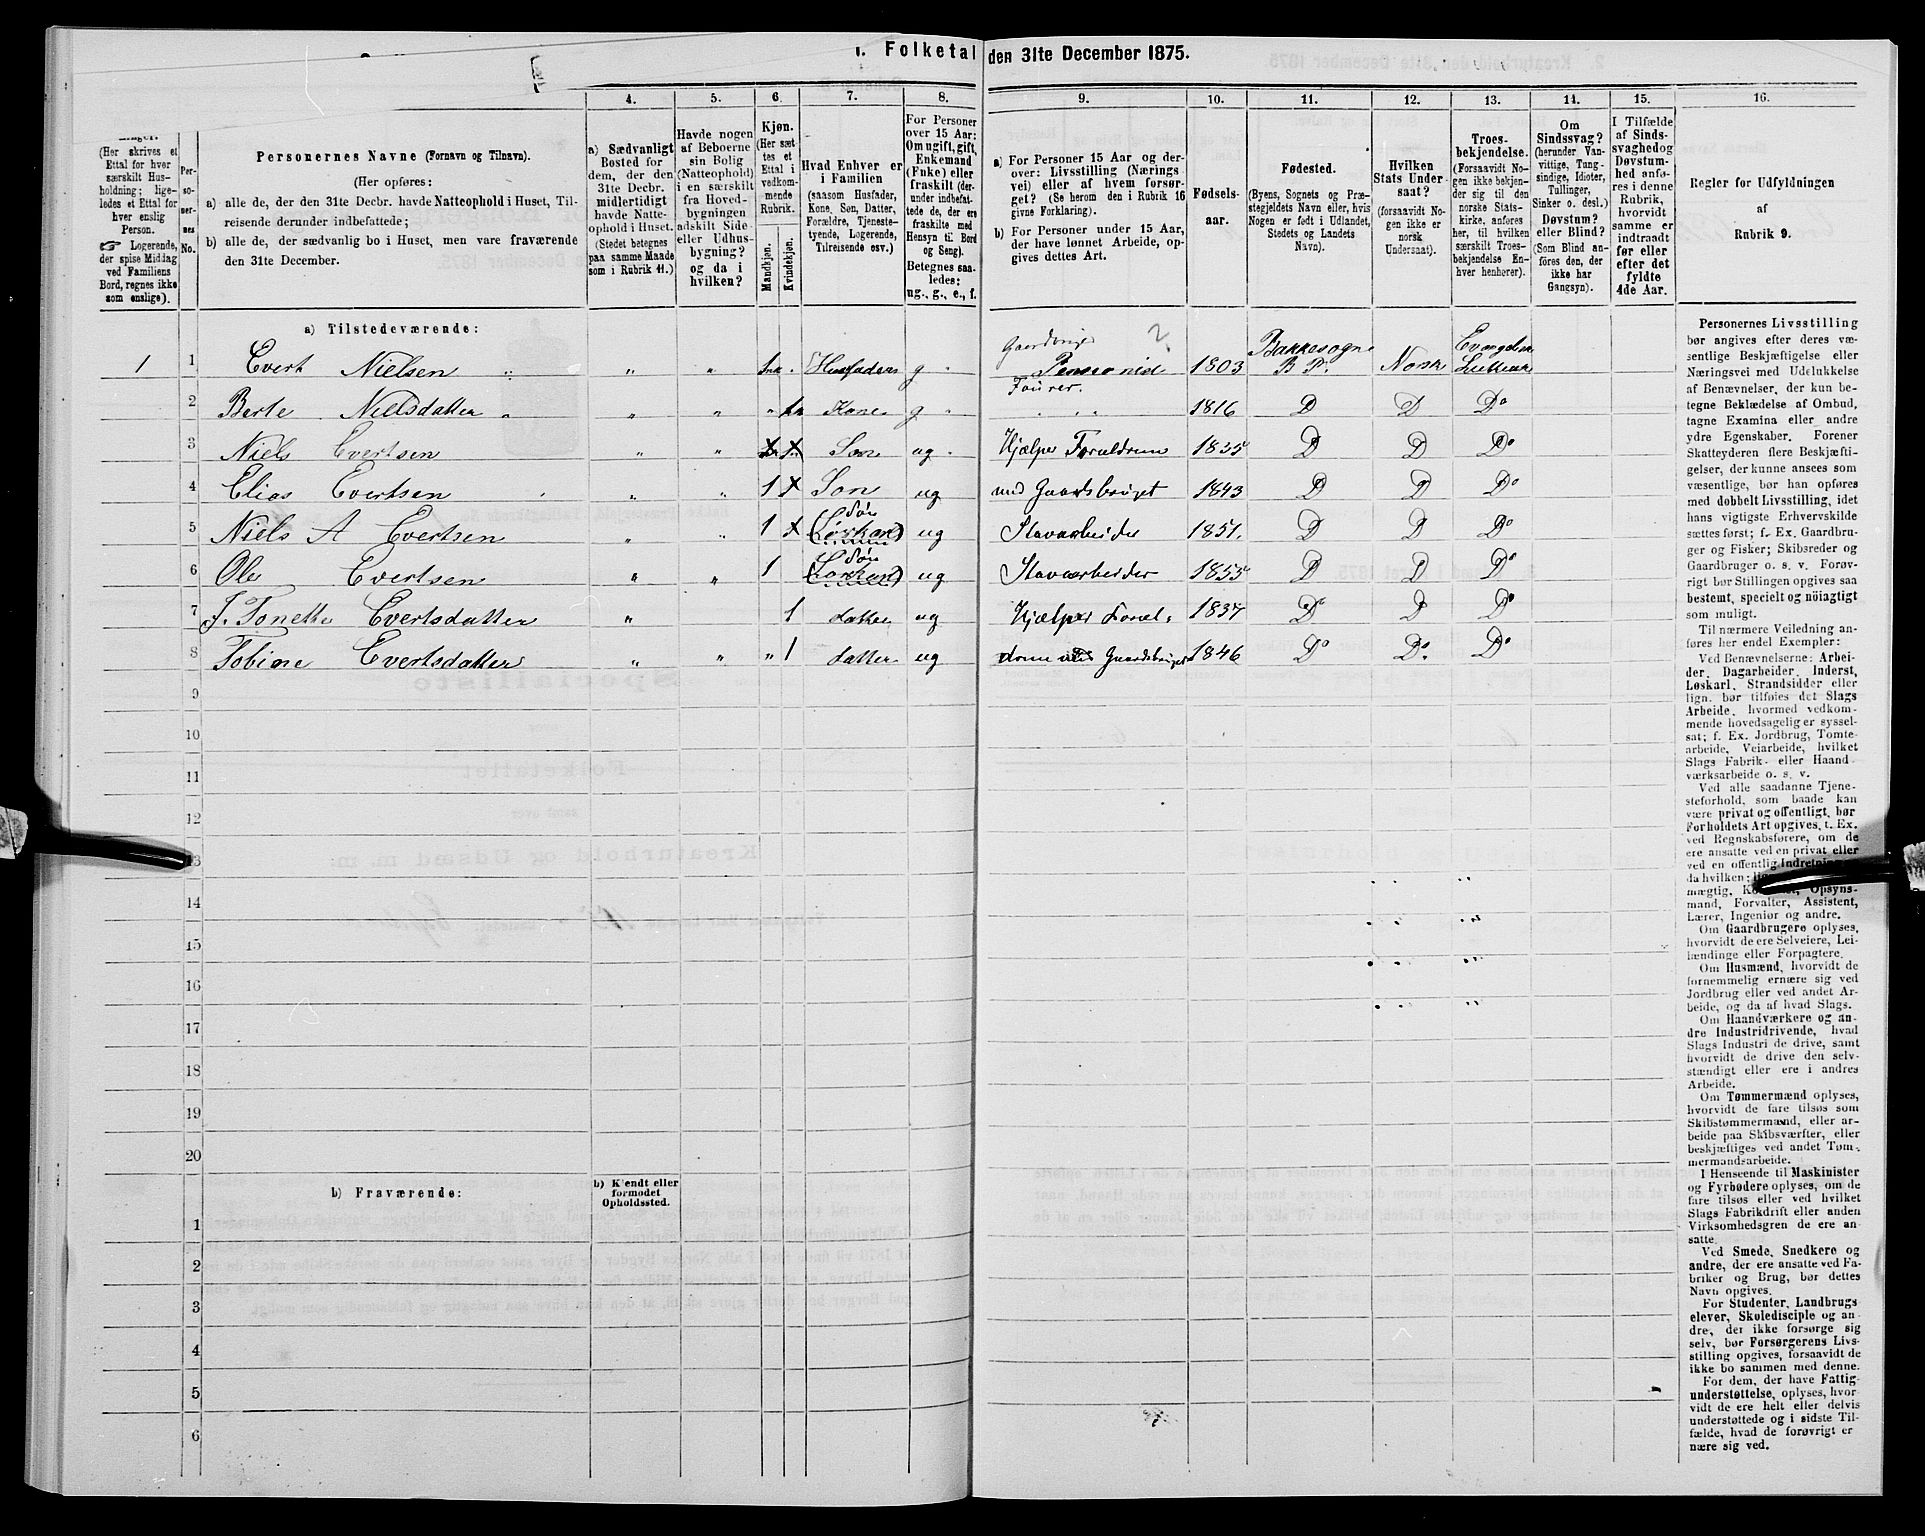 1. Folketal den 31te December 1875.
4. 5. 6. 7. 8. 9. 10. 11. 12. 13. 14. 15. 16.
(Her skrives et Ettal for hver særskilt Husholdning; ligeledes et Ettal for hver enslig Person.
☞ Logerende, der spise Middag ved Familiens Bord, regnes ikke som enslige).
Personernes No.
Personernes Navne (Fornavn og Tilnavn).
(Her opføres:
a) alle de, der den 31te Decbr. havde Natteophold i Huset, Tilreisende derunder indbefattede;
b) alle de, der sædvanlig bo i Huset, men vare fraværende den 31te December.
a) Sædvanligt Bosted for dem, der den 31te Decbr. midlertidigt havde Natteophold i Huset.
(Stedet betegnes paa samme Maade som i Rubrik 11.)
Havde nogen af Beboerne sin Bolig (Natteophold) i en særskilt fra Hovedbygningen adskilt Side- eller Udhusbygning? og da i hvilken?
Kjøn.
(Her sættes et Ettal i vedkommende Rubrik.
Mandkjøn. Kvindekjøn.
Hvad Enhver er i Familien
(saasom Husfader, Kone, Søn, Datter, Forældre, Tjenestetyende, Logerende, Tilreisende osv.)
For Personer over 15 Aar: Om ugift, gift, Enkemand (Enke) eller fraskilt (derunder indbefattede de, der ere fraskilte med Hensyn til Bord og Seng).
Betegnes saaledes: ug., g., e., f.
a) For Personer 15 Aar og derover: Livsstilling (Næringsvei) eller af hvem forsørget? (Se herom den i Rubrik 16 givne Forklaring).
b) For Personer under 15 Aar, der have lønnet Arbeide, opgives dettes Art.
Fødselsaar.
Fødested.
(Byens, Sognets og Præstegjeldets Navn eller, hvis Nogen er født i Udlandet, Stedets og Landets Navn).
Hvilken Stats Undersaat?
(forsaavidt Nogen ikke er norsk Undersaat).
Troesbekjendelse.
(Forsaavidt Nogen ikke bekjender sig til den norske Statskirke, anføres her, til hvilken særskilt Troesbekjendelse Enhver henhører).
Om Sindssvag?
(herunder Vanvittige, Tungsindige, Idioter, Tullinger, Sinker o. desl.)
Døvstum? eller Blind?
(Som Blind anføres den, der ikke har Gangsyn).
I Tilfælde af Sindssvaghed og Døvstumhed anføres i denne Rubrik, hvorvidt samme er indtraadt før eller efter det fyldte 4de Aar.
Regler for Udfyldningen af Rubrik 9.
a) Tilstedeværende:
1 1 Evert Nielsen " " Husfader g Gaardbruger Pensionid Fourer 1803 Bakkesogn B P. Norsk Evangelisk Luthersk
2 Berte Nielsdatter " " " Kone g " " " 1816 D D Do
3 Niels Evertsen " " Søn ug Hjælper Forældrene 1835 D D Do
4 Elias Evertsen " " 1 Søn ug med Gaardsbruget 1843 D D Do
5 Niels A Evertsen " " 1 Søn (Løskarl) ug Stavarbeider 1851. D D Do
6 Ole Evertsen " " 1 Søn (Løskarl) ug Stavarbeider 1855 D D Do
7 J. Tonette Evertsdatter " 1 datter ug Hjælper Forel- 1837 Do D Do
8 Tobine Evertsdatter " " " 1 datter ug drene med Gaardsbruget 1846 Do Do. Do
9
10
11
12
13
14
15
16
17
18
19
20
b) Fraværende:
b) Kjendt eller formodet Opholdssted.
1
2
3
4
5
6
Personernes Livsstilling
bør angives efter deres væ-
sentlige Beskjæftigelse eller
Næringsvei med Udelukkelse
af Benævnelser, der kun be-
tegne Beklædelse af Ombud,
tagne Examina eller andre
ydre Egenskaber. Forener
Skatteyderen flere Beskjæfti-
gelser, der kunne ansees som
væsentlige, bør han opføres
med dobbelt Livsstilling, idet
hans vigtigste Erhvervskilde
sættes først; f. Ex. Gaardbru-
ger og Fisker; Skibsreder og
Gaardbruger o. s. v. Forøv-
rigt bør Stillingen opgives saa
bestemt, specielt og nöiagtigt
som muligt.
Til nærmere Veiledning an-
føres her endel Exempler:
Ved Benævnelserne: Arbei-
der, Dagarbeider, Inderst,
Løskarl, Strandsidder eller
lign. bør tilføies det Slags
Arbeide, hvormed vedkom-
mende hovedsagelig er syssel-
sat; f. Ex. Jordbrug, Tomte-
arbeide, Veiarbeide, hvilket
Slags Fabrik- eller Haand-
værksarbeide o. s. v.
Ved alle saadanne Tjene-
steforhold, som baade kan
være privat og offentligt, bør
Forholdets Art opgives, t. Ex.
ved Regnskabsførere, om de
ere ansatte ved en privat eller
ved en offentlig Indretning
da hvilken;
mægtig, Opsyns-
mand, Forvalter, Assistent,
Lærer, Ingeniør og andre.
Om Gaardbrugere oplyses,
hvorvidt de ere Selveiere, Lei-
lændinge eller Forpagtere.
Om Husmænd, hvorvidt de
fornemmelig ernære sig ved
Jordbrug eller ved andet Ar-
beide, og da af hvad Slags.
Om Haandværkere og an-
dre Industridrivende, hvad
Slags Industri de drive, samt
hvorvidt de drive den selv-
stændigt eller ere i andres
Arbeide.
Om Tømmermænd oplyses,
hvorvidt de fare tilsøs som
Skibstømmermænd, eller ar-
beide paa Skibsværfter, eller
beskjæftiges ved andet Tøm-
mermandsarbeide.
I Henseende til Maskinister
og Fyrbødere oplyses, om de
fare tilsøs eller ved hvilket
Slags Fabrikdrift eller anden
Virksomhedsgren de ere an-
satte.
Ved Smede, Snedkere og
andre, der ere ansatte ved Fa-
briker og Brug, bør dettes
Navn opgives.
For Studenter, Landbrugs
elever, Skoledisciple og an-
dre, der ikke forsørge sig
selv, bør Forsørgerens Livs-
stilling opgives, forsaavidt de
ikke bo sammen med denne.
For dem, der have Fattig-
understøttelse, oplyses, hvor-
vidt de ere helt eller delvis
understøttede og i sidste Til-
fælde, hvad de forøvrigt er-
nære sig ved.